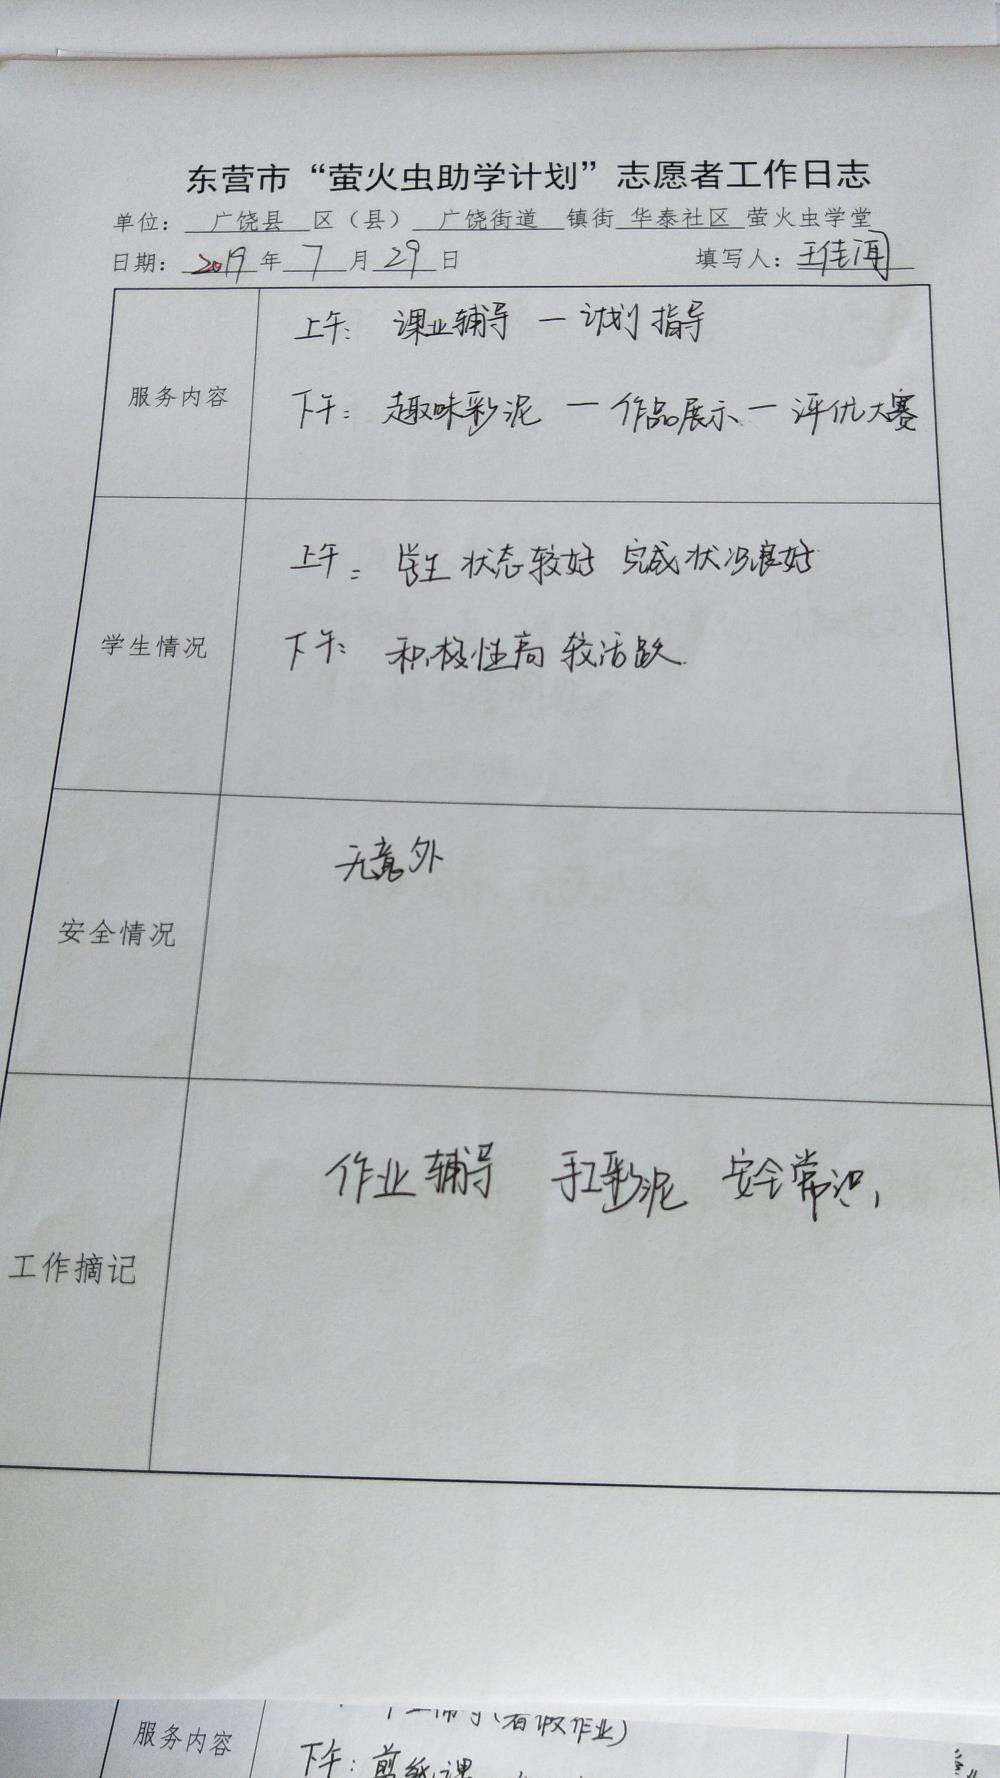 东营市“萤火虫助学计划”志愿者工作日志
单位： 广饶县 区（县） 广饶街道 镇街 华泰社区 萤火虫学堂
日期： 2019 年 7 月 29 日 填写人：王佳
服务内容
上午： 课业辅导 — 计划指导
下午： 趣味彩泥 — 作品展示 — 评优大赛
学生情况
上午： 学生状态较好 完成状况良好
下午： 积极性高 较活跃.
安全情况
无意外
工作摘记
作业辅导 手工彩泥 安全常识,
(暑假作业)
服务内容
下午：剪纸课